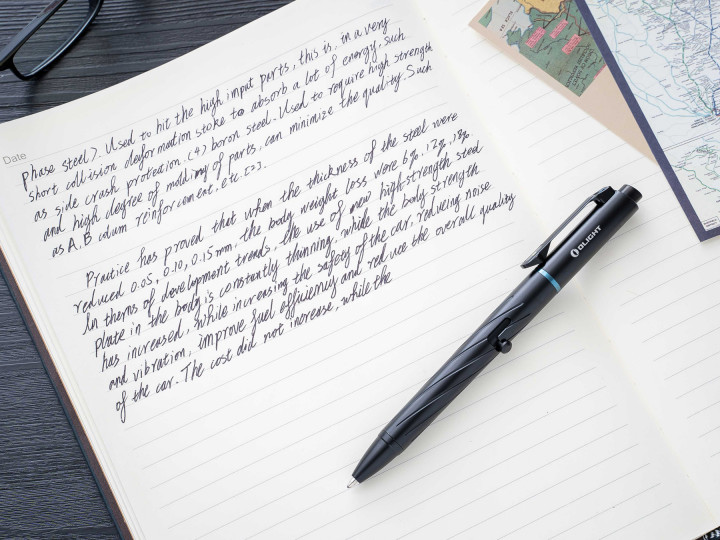 Date
phase steel). Used to hit the high impat parts, this is, in a very
short collision deformation stoke to absorb a lot of energy, such
as side crash protection. (4) boron steel. Used to require high strength
and high degree of molding of parts, can minimize the quality. Such
as A, B colum reinforcement, etc. [2].
Practice has proved that when the thickness of the steel were
reduced 0.05, 0.10, 0.15mm, the body weight loss were 6%, 12%, 18%.
In therns of development trends, the use of new high-strength steel
plate in the body is constantly thinning, while the body strength
has increased, while increasing the safety of the car, reducing noise
and vibration, improve fuel efficiency and reduce the overall quality
of the car. The cost did not increase, while the
OLIGHT